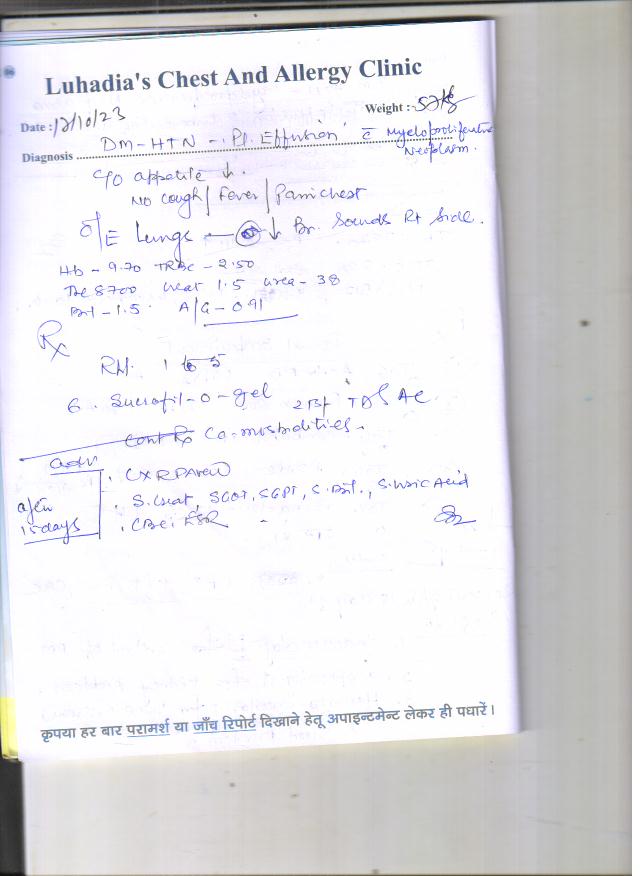 Luhadia's Chest And Allergy Clinic
Date : 12/10/23 Weight : 52 kg
Diagnosis DM - HTN - Pl. Effusion c̄ Myeloproliferative Neoplasm.
C/O appetite ↓.
No cough / Fever / Pain chest
O/E Lungs — ↓ Br. Sounds Rt Side.
Hb - 9.70 TRBC - 2.50
Tlc 8700 Creat 1.5 urea - 38
Bil - 1.5 A/G - 0.91
Rx
Rpt. 1 to 5
6. Sucrafil-O-gel 2 tsf TDS AC
Cont Rx Co-morbidities.
adv
after 15 days
. CXR PA view
. S. Creat, SGOT, SGPT, S. Bil., S. Uric Acid
. CBC ESR
कृपया हर बार परामर्श या जाँच रिपोर्ट दिखाने हेतू अपाइन्टमेन्ट लेकर ही पधारें।